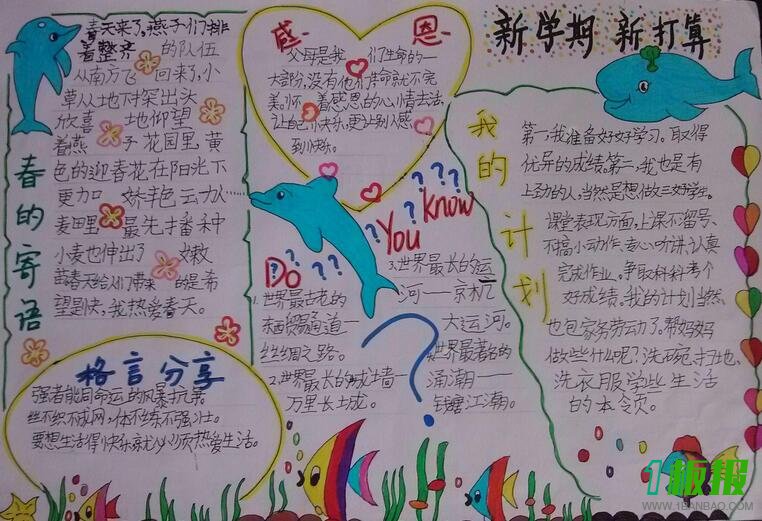 新学期 新打算
春的寄语
春天来了,燕子们排
着整齐 的队伍
从南方飞 回来了,小
草从地下探出头
欣喜 地仰望
着燕 子 花园里,黄
色的迎春花在阳光下
更力口 娇丰色云力人
麦田里 最先播种
小麦也伸出了 嫩
苗春天给们带来 的是希
望是快,我热爱春天。
格言分享
强者能同命运的风暴抗争
丝不织不成网,体不练不强壮。
要想生活得快乐就必须热爱生活。
感 恩
父母是我 们生命的一
大部份,没有他们生命就不完
美,怀 着感恩的心情去活,
让自己快乐,更让别人感
到快乐。
Do You Know
1.世界最古老的
东西贸易通道一
丝绸之路。
2.世界最长的城墙一
万里长城。
3.世界最长的运
河——京杭
大运河。
世界最著名的
涌潮——
钱塘江潮。
我的计划
第一,我准备好好学习。取得
优异的成绩。第二,我也是有
上劲的人,当然是想做三好学生。
课堂表现方面,上课不留号、
不搞小动作,专心听讲,认真
完成作业。争取科科考个
好成绩。我的计划当然
也包家务劳动了。帮妈妈
做些什么呢?洗碗、扫地、
洗衣服学些生活
的本领。
1板报
WWW.1BANBAO.COM